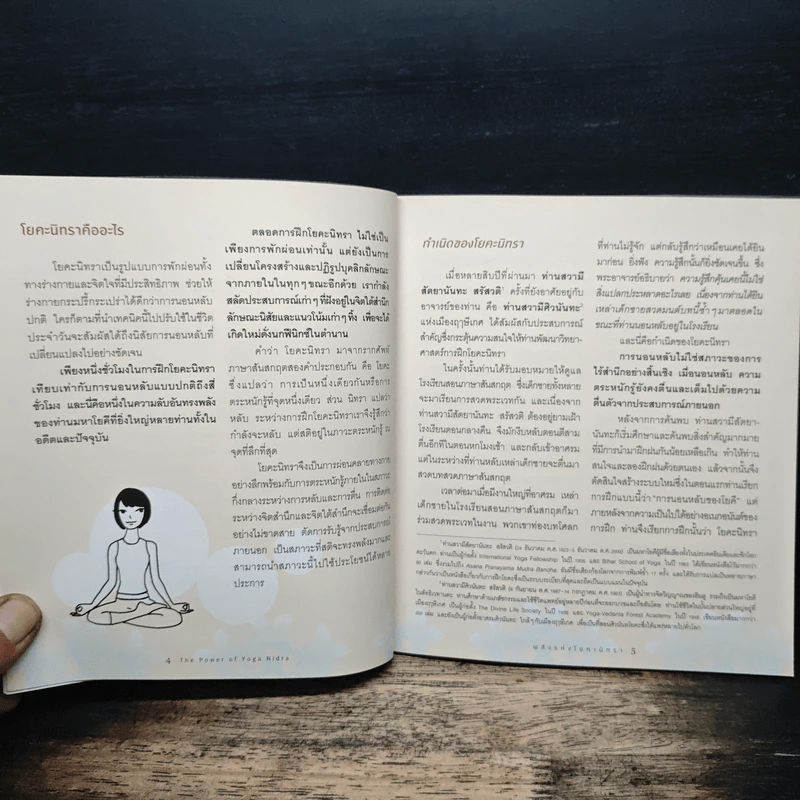 โยคะนิทราคืออะไร
โยคะนิทราเป็นรูปแบบการพักผ่อนทั้ง
ทางร่างกายและจิตใจที่มีประสิทธิภาพ ช่วยให้
ร่างกายกระปรี้กระเปร่าได้ดีกว่าการนอนหลับ
ปกติ ใครก็ตามที่นำเทคนิคนี้ไปปรับใช้ในชีวิต
ประจำวันจะสัมผัสได้ถึงนิสัยการนอนหลับที่
เปลี่ยนแปลงไปอย่างชัดเจน
เพียงหนึ่งชั่วโมงในการฝึกโยคะนิทรา
เทียบเท่ากับการนอนหลับแบบปกติถึงสี่
ชั่วโมง และนี่คือหนึ่งในความลับอันทรงพลัง
ของท่านมหาโยคีที่ยิ่งใหญ่หลายท่านทั้งใน
อดีตและปัจจุบัน
ตลอดการฝึกโยคะนิทรา ไม่ใช่เป็น
เพียงการพักผ่อนเท่านั้น แต่ยังเป็นการ
เปลี่ยนโครงสร้างและปฏิรูปบุคลิกลักษณะ
จากภายในในทุกๆ ขณะอีกด้วย เรากำลัง
สลัดประสบการณ์เก่าๆ ที่ฝังอยู่ในจิตใต้สำนึก
ลักษณะนิสัยและแนวโน้มเก่าๆ ทิ้ง เพื่อจะได้
เกิดใหม่ดั่งนกฟีนิกซ์ในตำนาน
คำว่า โยคะนิทรา มาจากรากศัพท์
ภาษาสันสกฤตสองคำประกอบกัน คือ โยคะ
ซึ่งแปลว่า การเป็นหนึ่งเดียวกันหรือการ
ตระหนักรู้ที่จุดหนึ่งเดียว ส่วน นิทรา แปลว่า
หลับ ระหว่างการฝึกโยคะนิทราเราจึงรู้สึกว่า
กำลังจะหลับ แต่สติอยู่ในภาวะตระหนักรู้ ณ
จุดที่ลึกที่สุด
โยคะนิทราจึงเป็นการผ่อนคลายทางกาย
อย่างลึกพร้อมกับการตระหนักรู้ภายในในสภาวะ
กึ่งกลางระหว่างการหลับและการตื่น การติดต่อ
ระหว่างจิตสำนึกและจิตใต้สำนึกจะเชื่อมต่อกัน
อย่างไม่ขาดสาย ตัดการรับรู้จากประสบการณ์
ภายนอก เป็นสภาวะที่สติจะทรงพลังมากและ
สามารถนำสภาวะนี้ไปใช้ประโยชน์ได้หลาย
ประการ
4 The Power of Yoga Nidra
กำเนิดของโยคะนิทรา
เมื่อหลายสิบปีที่ผ่านมา ท่านสวามี
สัตยานันทะ สรัสวติ¹ ครั้งที่ยังอาศัยอยู่กับ
อาจารย์ของท่าน คือ ท่านสวามีศิวนันทะ²
แห่งเมืองฤๅษีเกศ ได้สัมผัสกับประสบการณ์
สำคัญซึ่งกระตุ้นความสนใจให้ท่านพัฒนาวิทยา
ศาสตร์การฝึกโยคะนิทรา
ในครั้งนั้นท่านได้รับมอบหมายให้ดูแล
โรงเรียนสอนภาษาสันสกฤต ซึ่งเด็กชายทั้งหลาย
จะมาเรียนการสวดพระเวทกัน และเนื่องจาก
ท่านสวามีสัตยานันทะ สรัสวติ ต้องอยู่ยามเฝ้า
โรงเรียนตอนกลางคืน จึงมักงีบหลับตอนตีสาม
ตื่นอีกทีในตอนหกโมงเช้า และกลับเข้าอาศรม
แต่ในระหว่างที่ท่านหลับเหล่าเด็กชายจะตื่นมา
สวดบทสวดภาษาสันสกฤต
เวลาต่อมาเมื่อมีงานใหญ่ที่อาศรม เหล่า
เด็กชายในโรงเรียนสอนภาษาสันสกฤตก็มา
ร่วมสวดพระเวทในงาน พวกเขาท่องบทโศลก
ที่ท่านไม่รู้จัก แต่กลับรู้สึกว่าเหมือนเคยได้ยิน
มาก่อน ยิ่งฟัง ความรู้สึกนั้นก็ยิ่งชัดเจนขึ้น ซึ่ง
พระอาจารย์อธิบายว่า ความรู้สึกคุ้นเคยนี้ไม่ใช่
สิ่งแปลกประหลาดอะไรเลย เนื่องจากท่านได้ยิน
เหล่าเด็กชายสวดมนต์บทนี้ซ้ำๆ มาตลอดใน
ขณะที่ท่านนอนหลับอยู่ในโรงเรียน
และนี่คือกำเนิดของโยคะนิทรา
การนอนหลับไม่ใช่สภาวะของการ
ไร้สำนึกอย่างสิ้นเชิง เมื่อนอนหลับ ความ
ตระหนักรู้ยังคงตื่นและเต็มไปด้วยความ
ตื่นตัวจากประสบการณ์ภายนอก
หลังจากการค้นพบ ท่านสวามีสัตยา-
นันทะก็เริ่มศึกษาและค้นพบสิ่งสำคัญมากมาย
ที่มีการนำมาฝึกฝนกันน้อยเหลือเกิน ทำให้ท่าน
สนใจและลองฝึกฝนด้วยตนเอง แล้วจากนั้นจึง
ตัดสินใจสร้างระบบใหม่ซึ่งในตอนแรกท่านเรียก
การฝึกแบบนี้ว่า "การนอนหลับของโยคี" แต่
ภายหลังจากความเป็นไปได้อย่างอเนกอนันต์ของ
การฝึก ท่านจึงเรียกการฝึกนั้นว่า โยคะนิทรา
พลังแห่งโยคะนิทรา 5